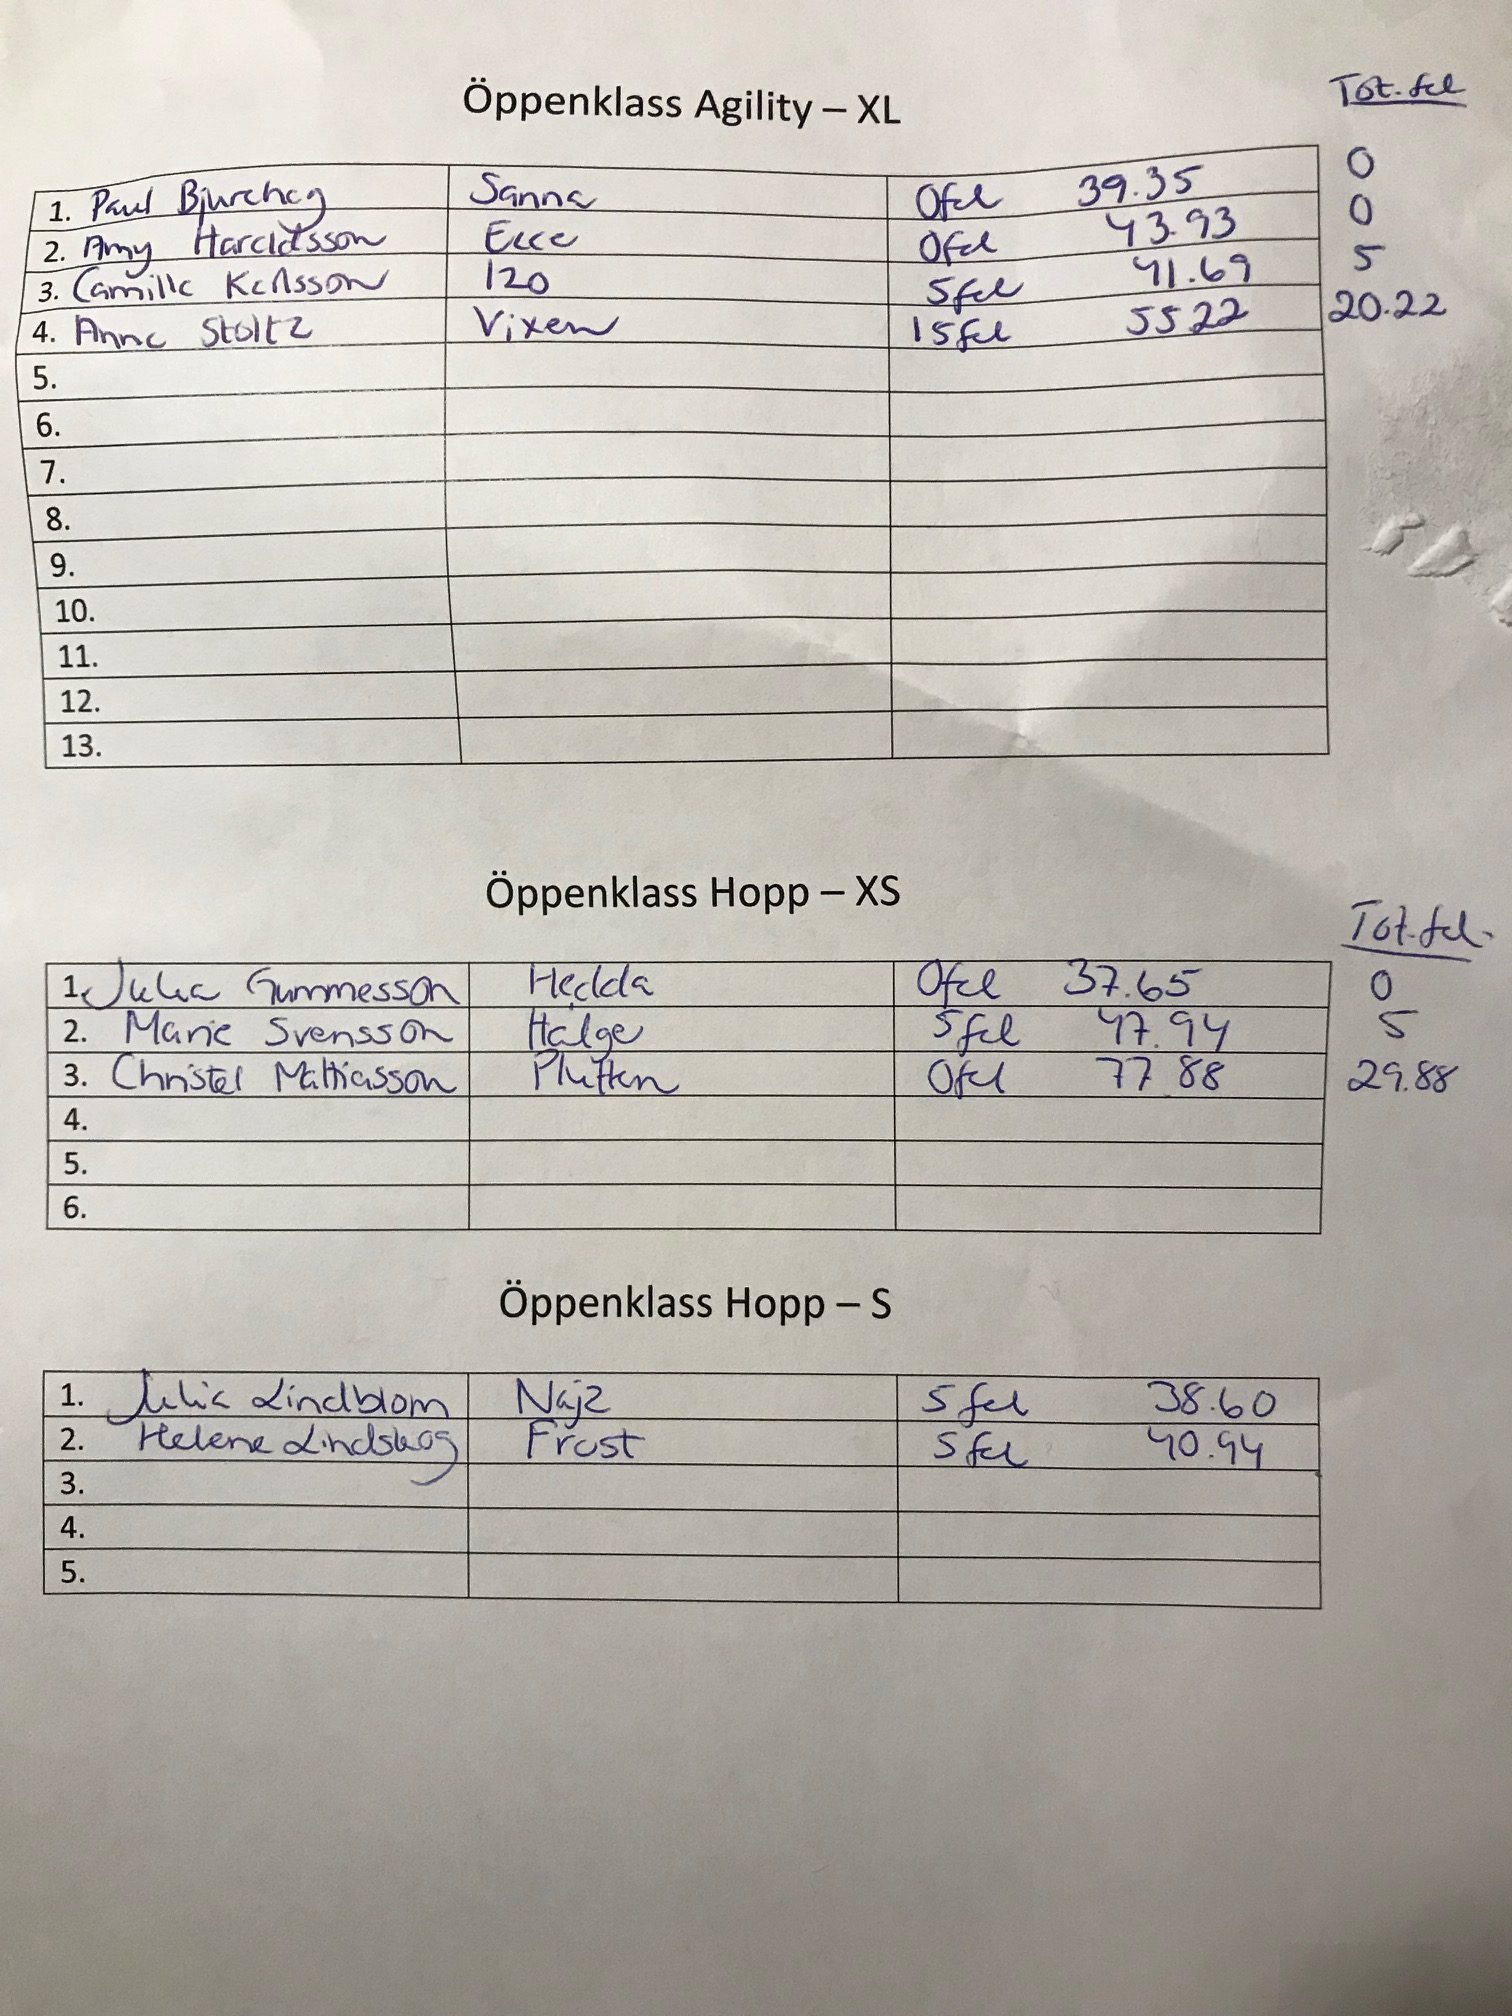 Öppenklass Agility – XL
Tot. fel
1. Paul Bjurehag Sanna 0 fel 39.35 0
2. Amy Haraldsson Ecce 0 fel 43.93 0
3. Camilla Karlsson 120 5 fel 41.69 5
4. Anna Stoltz Vixen 15 fel 55 22 20.22
5.
6.
7.
8.
9.
10.
11.
12.
13.
Öppenklass Hopp – XS
Tot. fel.
1. Julia Gummesson Hedda 0 fel 37.65 0
2. Marie Svensson Halge 5 fel 47.94 5
3. Christel Mattiasson Plutten 0 fel 77 88 29.88
4.
5.
6.
Öppenklass Hopp – S
1. Julia Lindblom Najz 5 fel 38.60
2. Helene Lindskog Frost 5 fel 40.94
3.
4.
5.